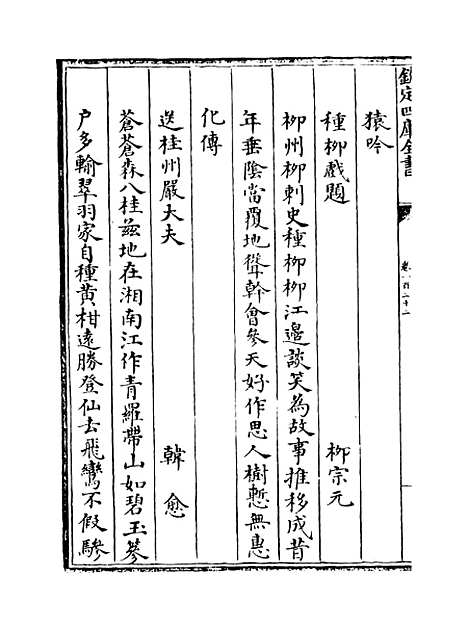 欽定四庫全書
卷一百二十二
猿吟
種柳戲題　柳宗元
柳州柳刺史種柳柳江邊談笑為故事推移成昔
年垂陰當覆地聳幹會參天好作思人樹慙無惠
化傳
送桂州嚴大夫　韓愈
蒼蒼森八桂兹地在湘南江作青羅帶山如碧玉篸
户多輸翠羽家自種黄柑遠勝登仙去飛鸞不假驂